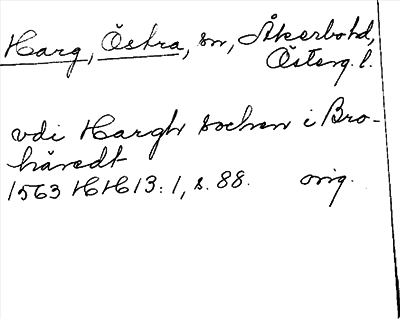 Harg, Östra, sn, Åkerbohd,
Österg. l.
vdi Hargh sochen i Bro-
häredt
1563 HH 13:1, s. 88. orig.